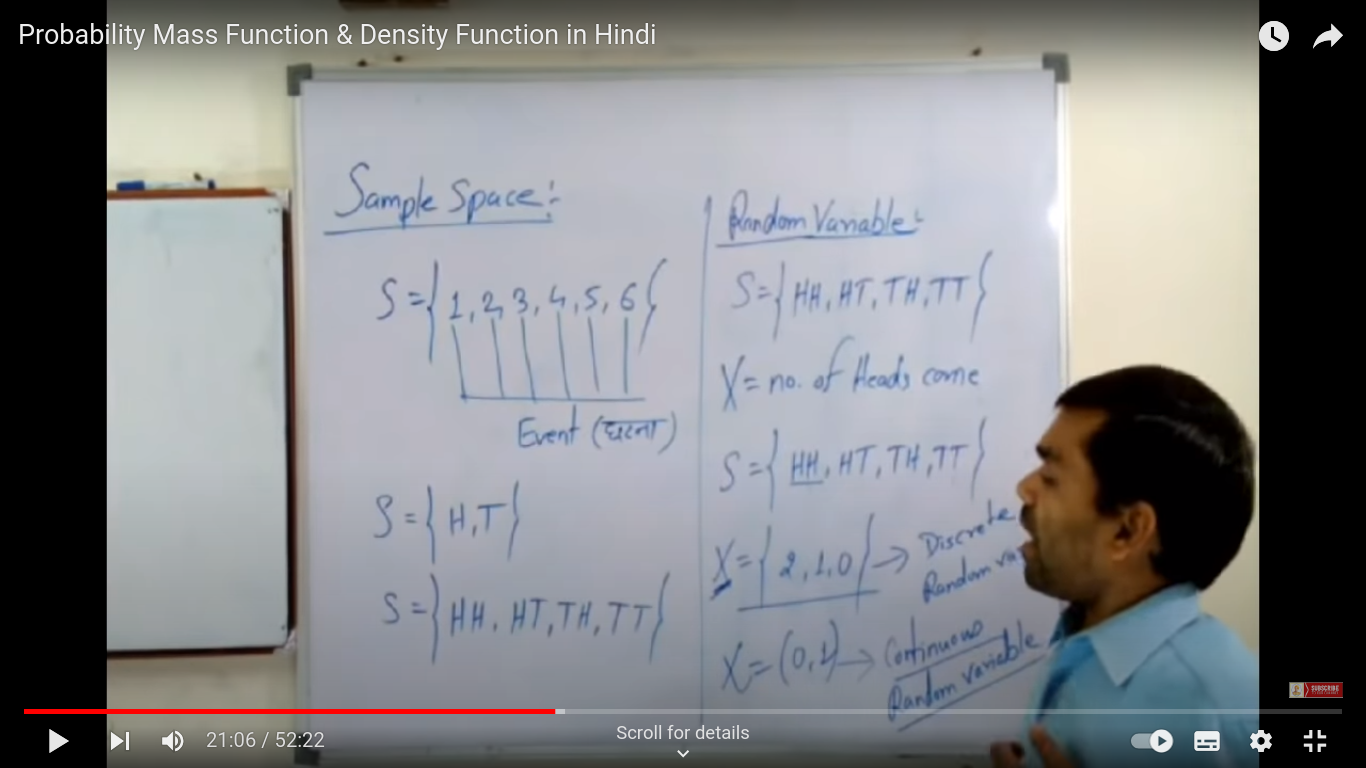 Probability Mass Function & Density Function in Hindi
Sample Space:-
S={1,2,3,4,5,6}
Event (घटना)
S={H,T}
S={HH, HT, TH, TT}
Random Variable:-
S={HH, HT, TH, TT}
X= no. of Heads come
S={HH, HT, TH, TT}
X={2,1,0} → Discrete
Random va
X=(0,1) → Continuous
Random Variable
SUBSCRIBE
21:06 / 52:22
Scroll for details